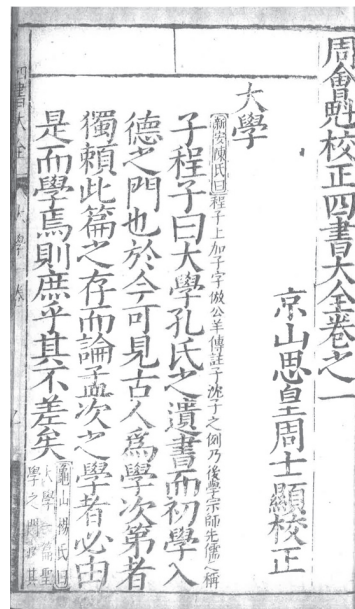 周會魁校正四書大全卷之一
京山思皇周士顯校正
大學
新安陳氏曰程子上加子字倣公羊傳註子沈子之例乃後學宗師先儒之稱
子程子曰大學孔氏之遺書而初學入
德之門也於今可見古人爲學次第者
獨賴此篇之存而論孟次之學者必由
是而學焉則庶乎其不差矣
龜山楊氏曰
大學一篇聖
學之門户其
四書大全
大學